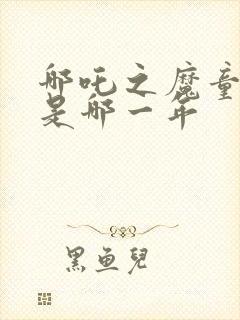 哪吒之魔童
是哪一年
黑鱼兒